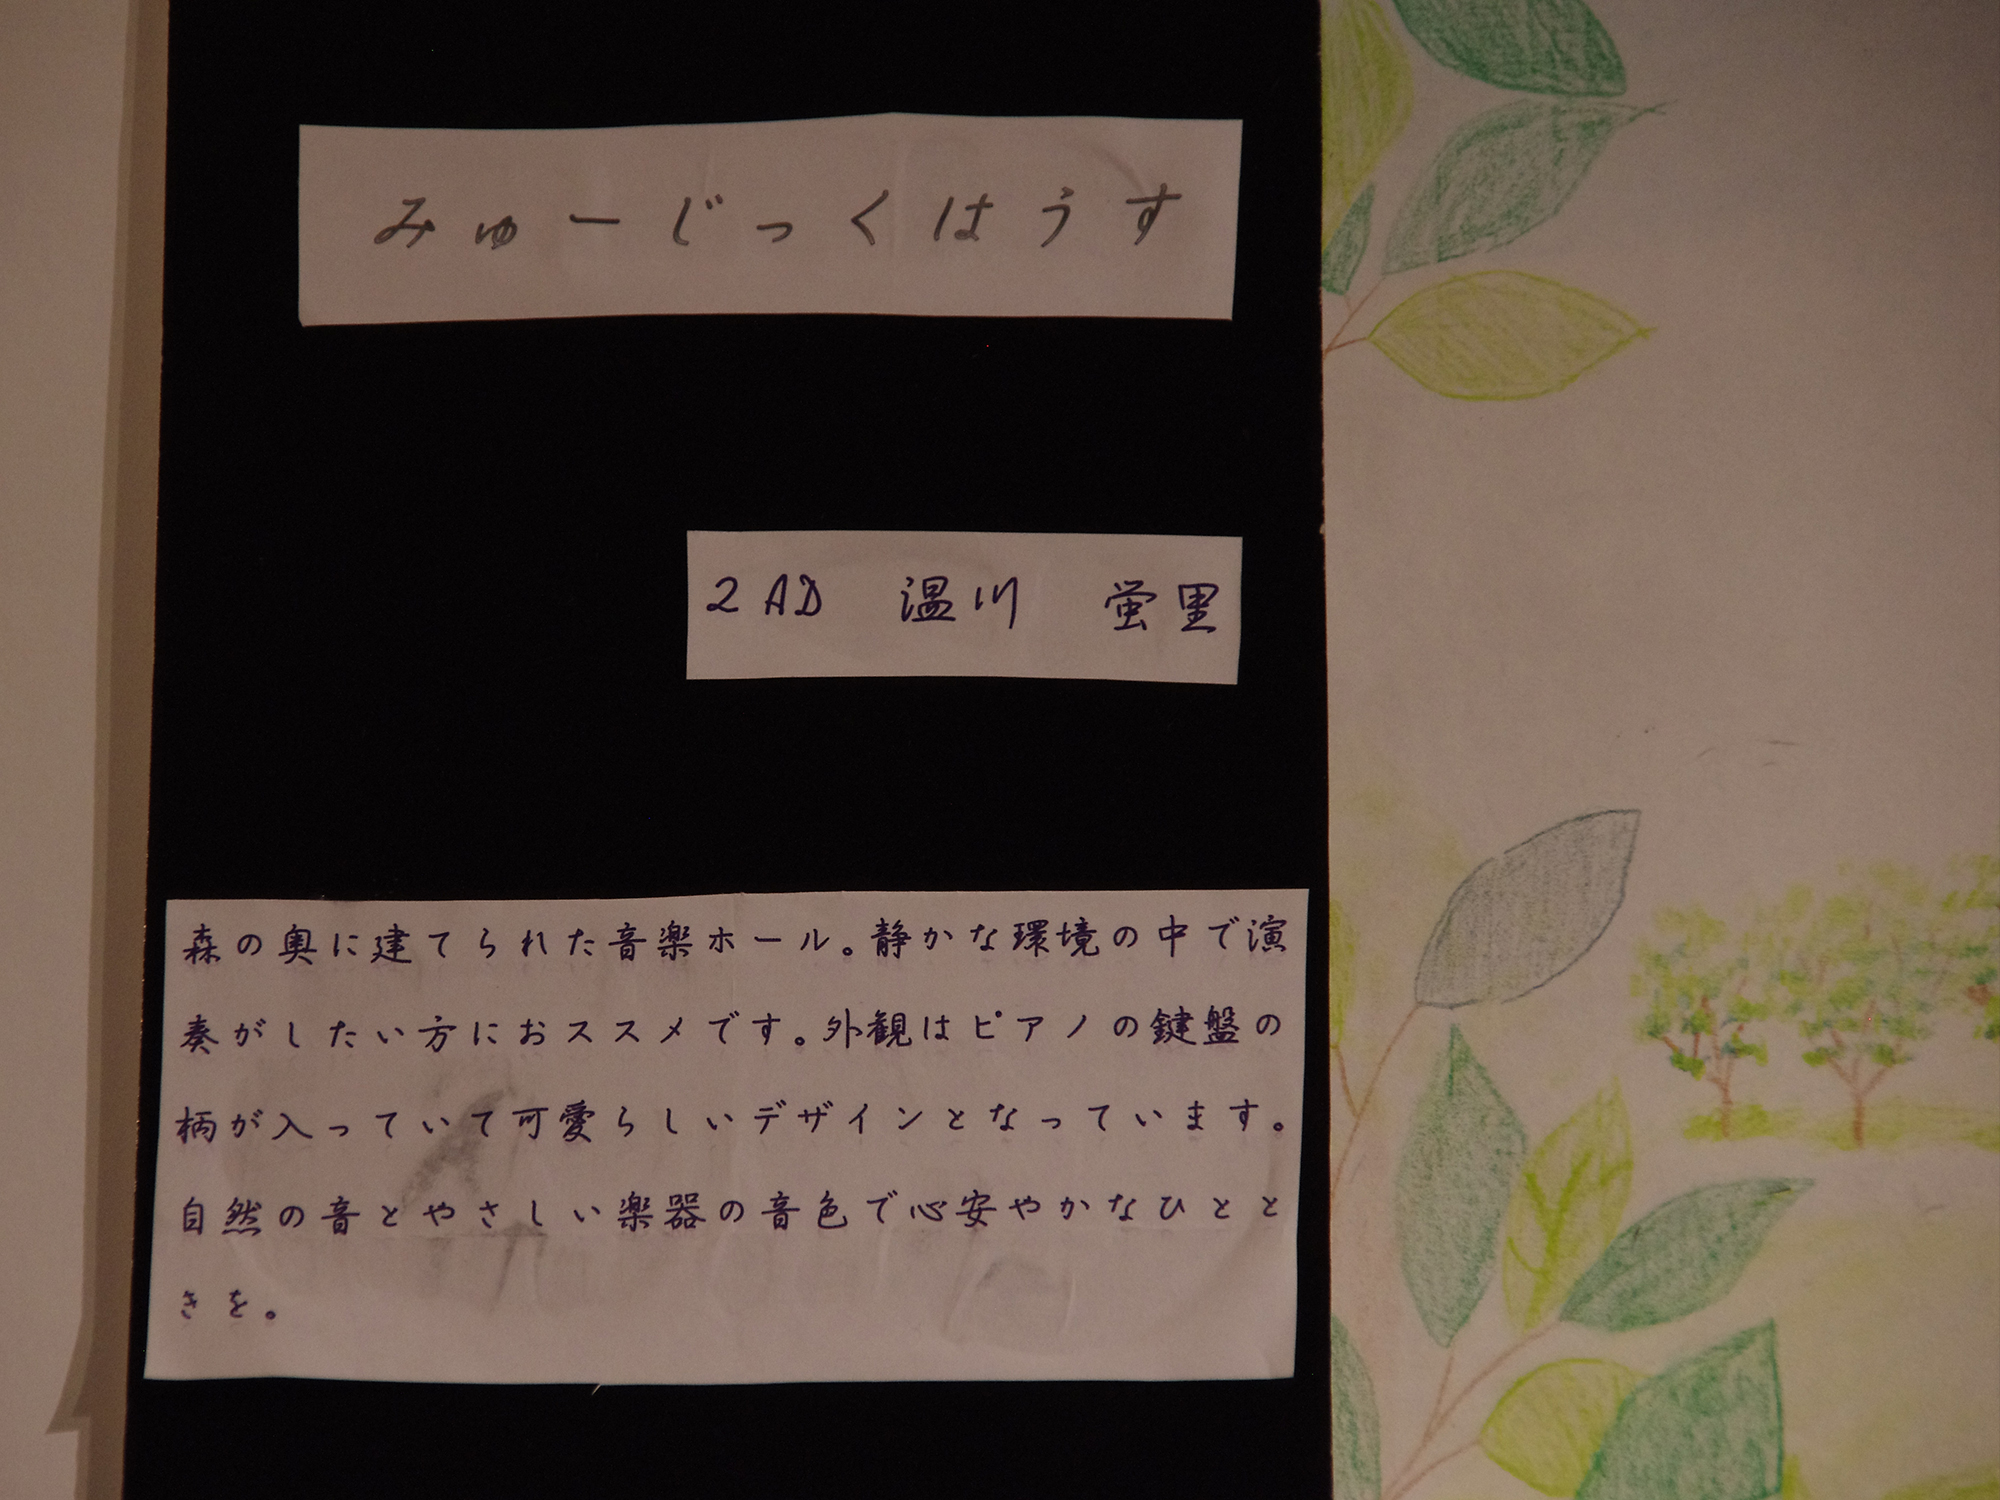 みゅーじっくはうす
2AD 温川 蛍里
森の奥に建てられた音楽ホール。静かな環境の中で演
奏がしたい方におススメです。外観はピアノの鍵盤の
柄が入っていて可愛らしいデザインとなっています。
自然の音とやさしい楽器の音色で心安やかなひとと
きを。